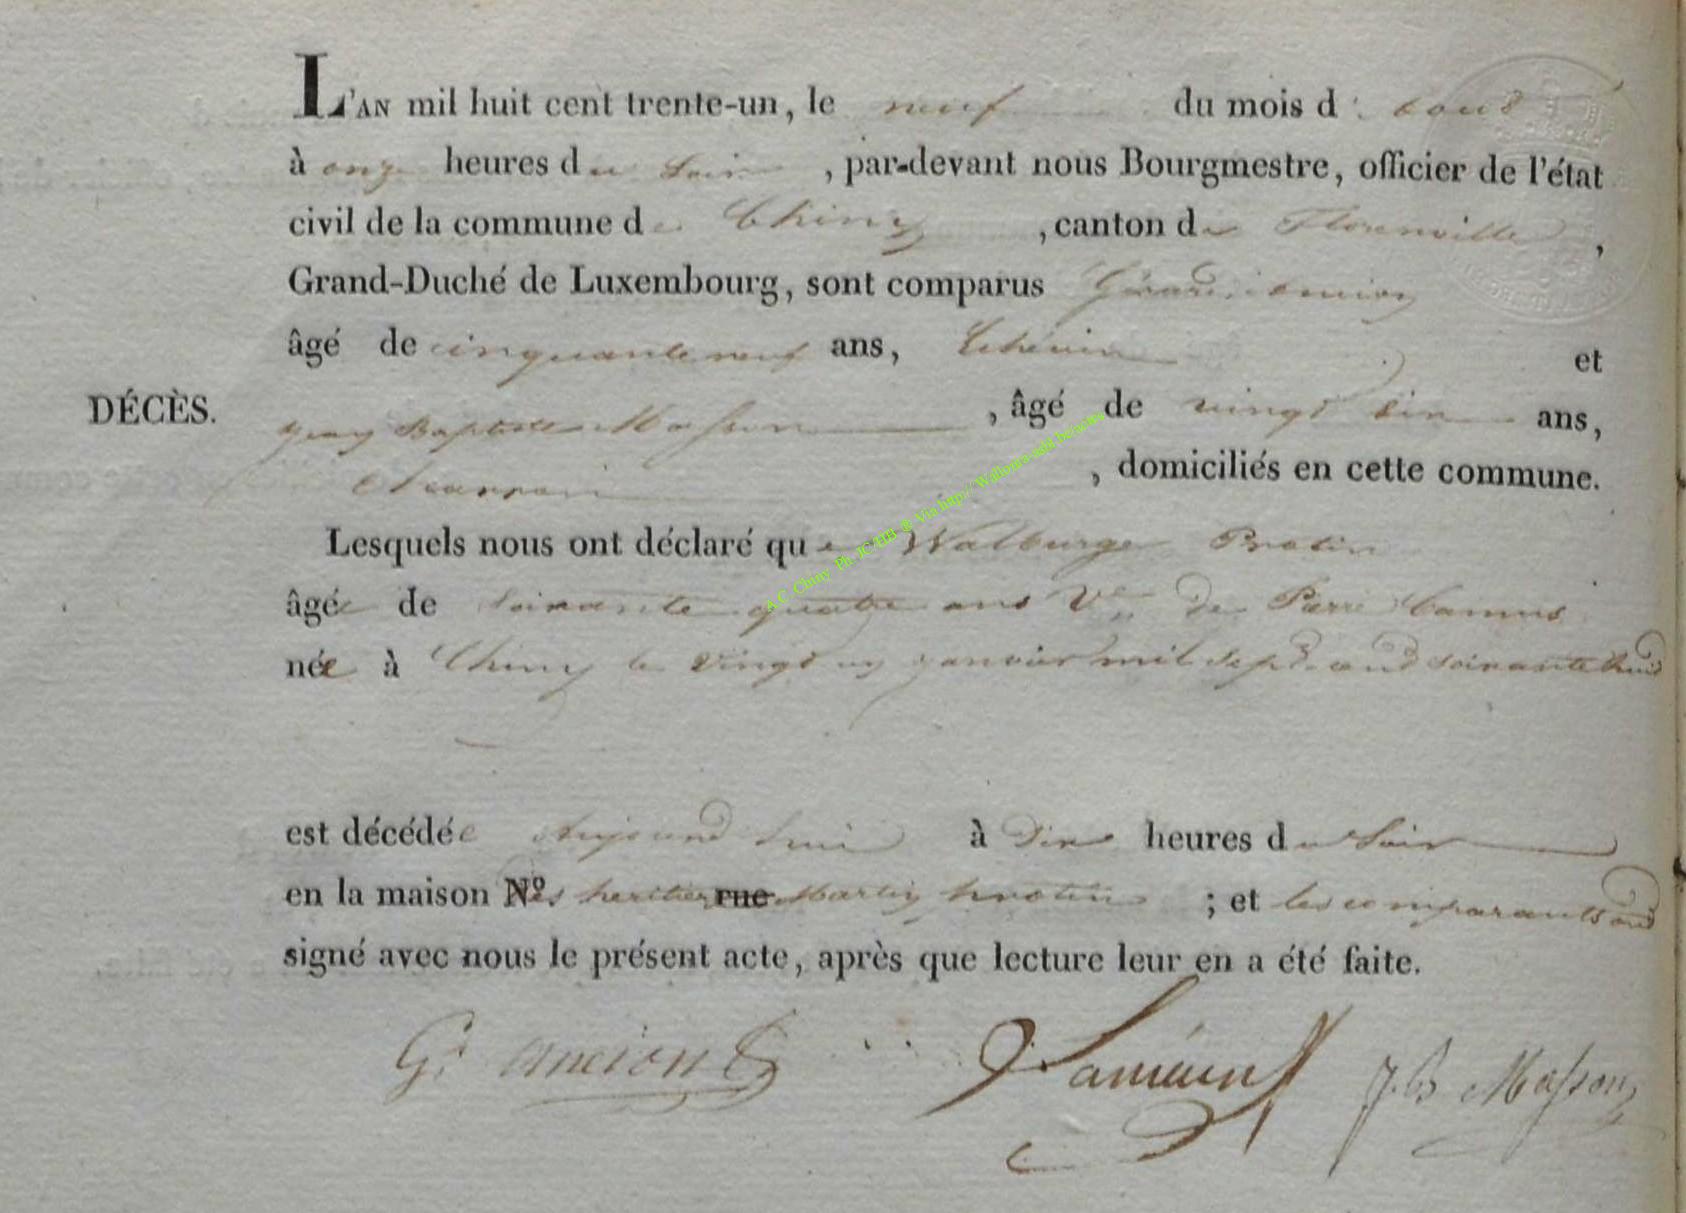 L'AN mil huit cent trente-un, le neuf du mois d'août
à onze heures du Soir, par-devant nous Bourgmestre, officier de l'état
civil de la commune de Chiny, canton de Florenville,
Grand-Duché de Luxembourg, sont comparus Gérard ancion
âgé de cinquante neuf ans, Echevin et
DÉCÈS.
Jean Baptiste Masson, âgé de vingt six ans,
domiciliés en cette commune.
Lesquels nous ont déclaré que Walburge Protin
âgée de soixante quatre ans Vve de Pierre Camus
née à Chiny le vingt un janvier mil sept cent soixante huit
est décédée aujourd'hui à Dix heures du Soir
en la maison N°. des heritiers rue Martin protin ; et les comparants ont
signé avec nous le présent acte, après que lecture leur en a été faite.
Gd ancion J B Masson
A C Chiny Ph JC HB ® Via http://